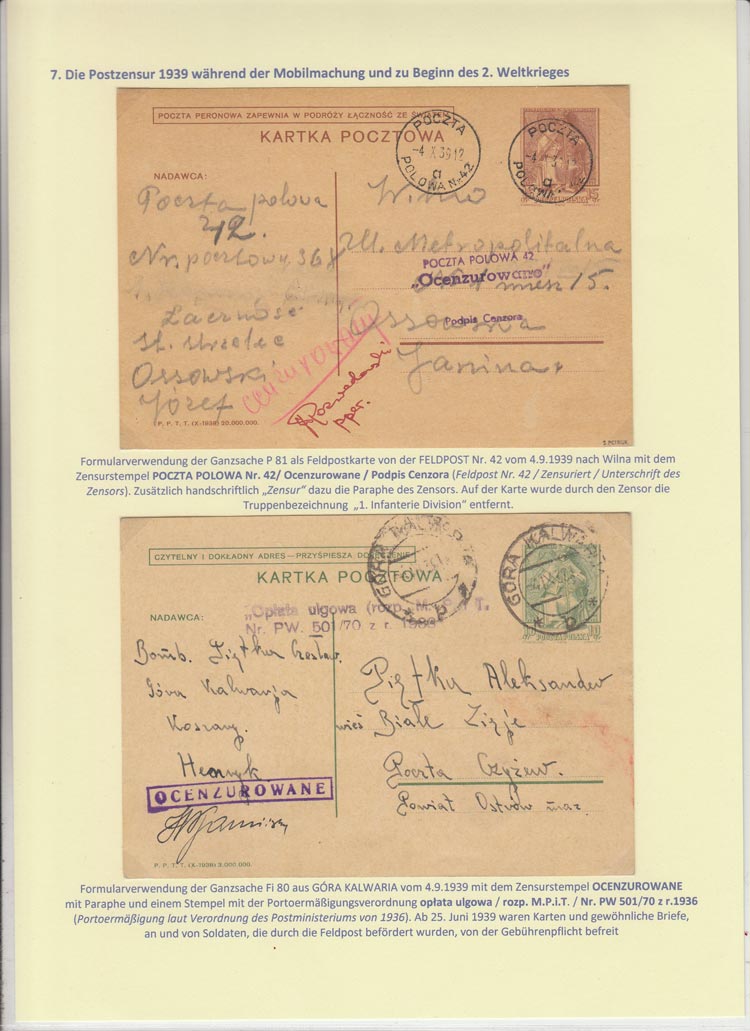 7. Die Postzensur 1939 während der Mobilmachung und zu Beginn des 2. Weltkrieges
POCZTA PERONOWA ZAPEWNIA W PODRÓŻY ŁĄCZNOŚĆ ZE
KARTKA POCZTOWA
POCZTA
-4 X 39 12
a
POLOWA Nr. 42
POCZTA
a
POLOWA
NADAWCA:
Poczta polowa
42.
Nr. pocztowy 368
Łączność
st. strzelec
Ossowski
Józef
Wilno
Ul. Metropolitalna
POCZTA POLOWA 42.
„Ocenzurowane”
miesz 15.
Podpis Cenzora
Ossowska
Janina
cenzurowany
ppor.
(P. P. T. T. (X-1938) 20.000.000.
Formularverwendung der Ganzsache P 81 als Feldpostkarte von der FELDPOST Nr. 42 vom 4.9.1939 nach Wilna mit dem
Zensurstempel POCZTA POLOWA Nr. 42/ Ocenzurowane / Podpis Cenzora (Feldpost Nr. 42 / Zensuriert / Unterschrift des
Zensors). Zusätzlich handschriftlich „Zensur“ dazu die Paraphe des Zensors. Auf der Karte wurde durch den Zensor die
Truppenbezeichnung „1. Infanterie Division“ entfernt.
CZYTELNY I DOKŁADNY ADRES—PRZYŚPIESZA DORĘCZENIE
KARTKA POCZTOWA
GÓRA KALWARIA
b
GÓRA KALWARIA
b
POCZTA POLSKA
10
NADAWCA:
„Opłata ulgowa (rozp. M. P. i T.
Nr. PW. 501/70 z r. 1936
Bomb. Piętka Czesław.
Góra Kalwarja
Koszary.
Henryk
OCENZUROWANE
Piętka Aleksander
wieś Białe Zieje
Poczta Czyżew.
Powiat Ostrów maz.
P. P. T. T. (X-1938) 3.000.000.
Formularverwendung der Ganzsache Fi 80 aus GÓRA KALWARIA vom 4.9.1939 mit dem Zensurstempel OCENZUROWANE
mit Paraphe und einem Stempel mit der Portoermäßigungsverordnung opłata ulgowa / rozp. M.P.i.T. / Nr. PW 501/70 z r.1936
(Portoermäßigung laut Verordnung des Postministeriums von 1936). Ab 25. Juni 1939 waren Karten und gewöhnliche Briefe,
an und von Soldaten, die durch die Feldpost befördert wurden, von der Gebührenpflicht befreit